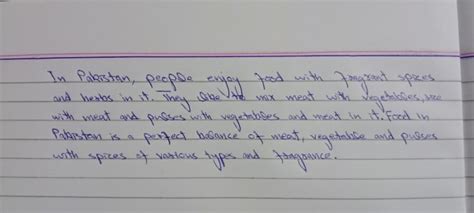 In Pakistan, people enjoy food with fragrant spices
and herbs in it. They like to mix meat with vegetables, rice
with meat and pulses with vegetables and meat in it. Food in
Pakistan is a perfect balance of meat, vegetable and pulses
with spices of various types and fragrance.